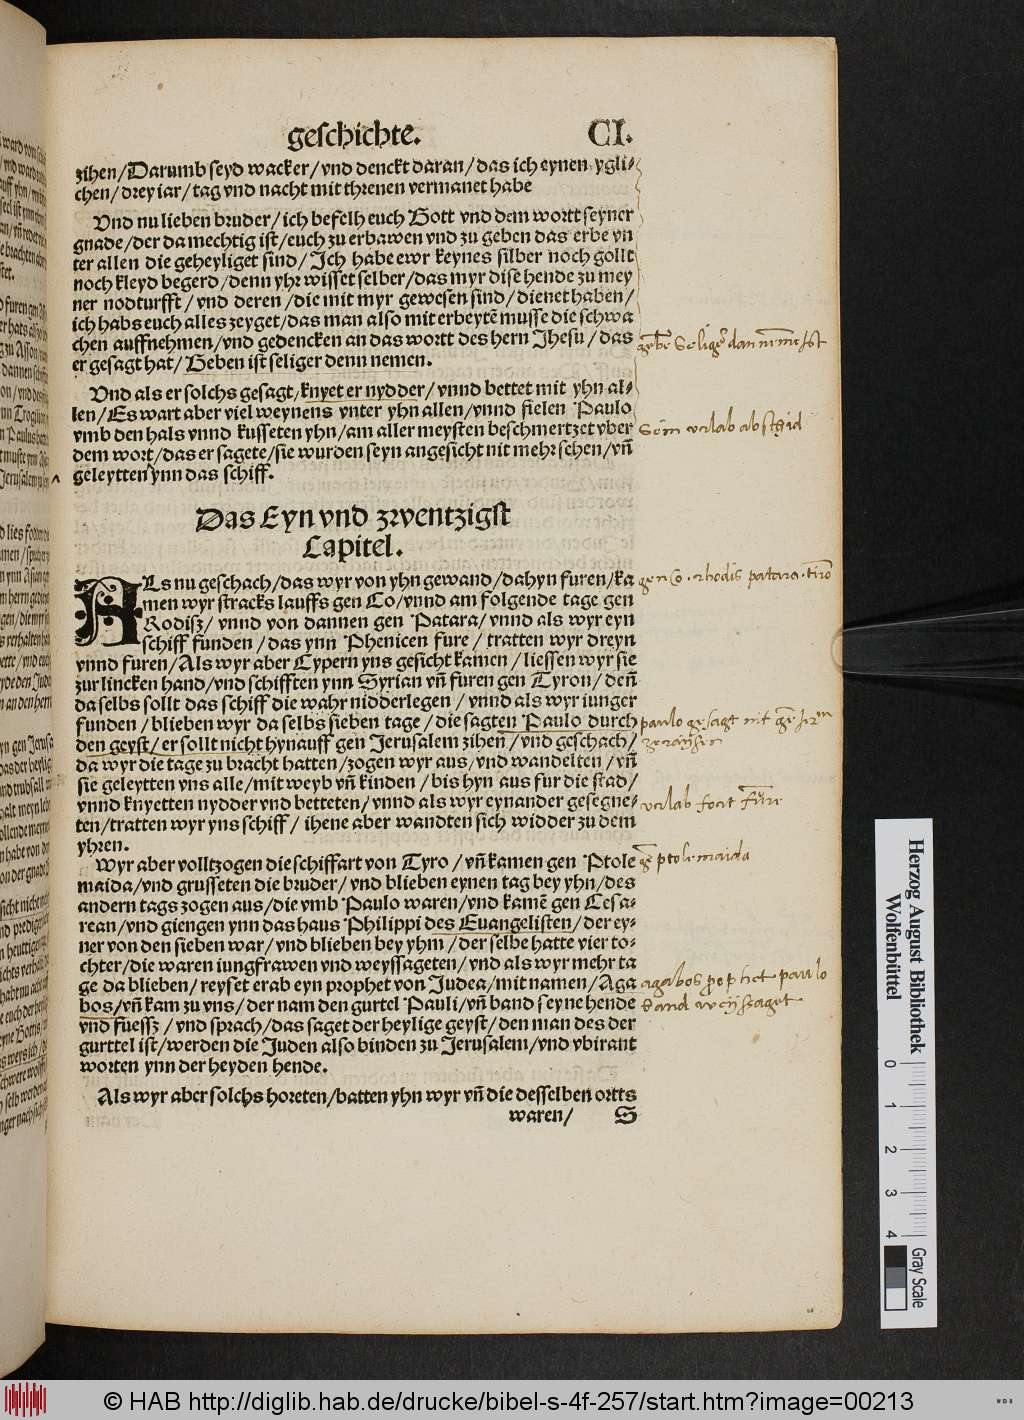 geschichte. CI.
zihen/Darumb seyd wacker/vnd denckt daran/das ich eynen ygli-
chen/drey iar/tag vnd nacht mit threnen vermanet habe
Vnd nu lieben bruder/ich befelh euch Gott vnd dem wortt seyner
gnade/der da mechtig ist/euch zu erbawen vnd zu geben das erbe vn
ter allen die geheyliget sind/Ich habe ewr keynes silber noch gollt
noch kleyd begerd/denn yhr wisset selber/das myr dise hende zu mey
ner nodturfft/vnd deren/die mit myr gewesen sind/dienet haben/
ich habs euch alles zeyget/das man also mit erbeytẽ musse die schwa
chen auffnehmen/vnd gedencken an das wortt des hern Jhesu/das
er gesagt hat/Geben ist seliger denn nemen.
Vnd als er solchs gesagt/knyet er nydder/vnnd bettet mit yhn al-
len/Es wart aber viel weynens vnter yhn allen/vnnd fielen Paulo
vmb den hals vnnd kusseten yhn/am aller meysten beschmertzet vber
dem wort/das er sagete/sie wurden seyn angesicht nit mehr sehen/vñ
geleytten ynn das schiff.
Das Eyn vnd zwentzigst
Capitel.
ALs nu geschach/das wyr von yhn gewand/dahyn furen/ka
men wyr stracks lauffs gen Co/vnnd am folgende tage gen
Rodisz/vnnd von dannen gen Patara/vnnd als wyr eyn
schiff funden/das ynn Phenicen fure/tratten wyr dreyn
vnnd furen/Als wyr aber Cypern yns gesicht kamen/liessen wyr sie
zur lincken hand/vnd schifften ynn Syrian vñ furen gen Tyron/deñ
da selbs sollt das schiff die wahr nidderlegen/vnnd als wyr iunger
funden/blieben wyr da selbs sieben tage/die sagten Paulo durch
den geyst/er sollt nicht hynauff gen Jerusalem zihen/vnd geschach/
da wyr die tage zu bracht hatten/zogen wyr aus/vnd wandelten/vñ
sie geleytten vns alle/mit weyb vñ kinden/bis hyn aus fur die stad/
vnnd knyetten nydder vnd betteten/vnnd als wyr eynander gesegne-
ten/tratten wyr yns schiff/ihene aber wandten sich widder zu dem
yhren.
Wyr aber volltzogen die schiffart von Tyro/vñ kamen gen Ptole
maida/vnd grusseten die bruder/vnd blieben eynen tag bey yhn/des
andern tags zogen aus/die vmb Paulo waren/vnd kamẽ gen Cesa-
rean/vnd giengen ynn das haus Philippi des Euangelisten/der ey-
ner von den sieben war/vnd blieben bey yhm/der selbe hatte vier to-
chter/die waren iungfrawen vnd weyssageten/vnd als wyr mehr ta
ge da blieben/reyset erab eyn prophet von Judea/mit namen/Aga
bos/vñ kam zu vns/der nam den gurtel Pauli/vñ band seyne hende
vnd fuessz/vnd sprach/das saget der heylige geyst/den man des der
gurttel ist/werden die Juden also binden zu Jerusalem/vnd vbirant
worten ynn der heyden hende.
Als wyr aber solchs horeten/batten yhn wyr vñ die desselben ortts
waren/ S
gen Co. rhodis patara. tiro
paulo gesagt nit
ptolemaida
agabos paulo
Herzog August Bibliothek
Wolfenbüttel
0 1 2 3 4
Gray Scale
© HAB http://diglib.hab.de/drucke/bibel-s-4f-257/start.htm?image=00213